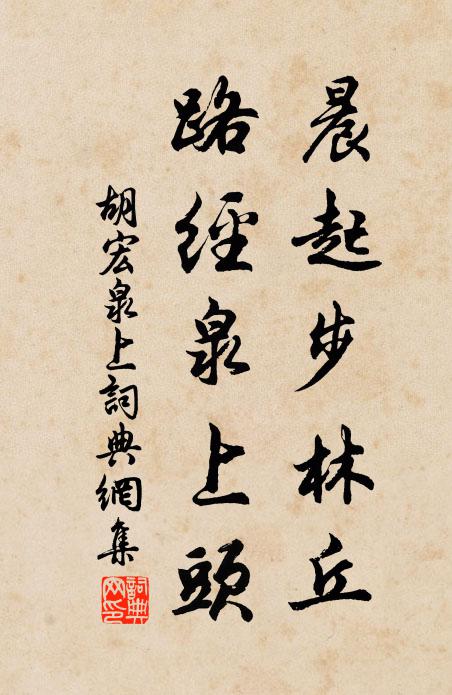 晨起步林丘
路經泉上頭
胡宏泉上詞典網集
詞典網印